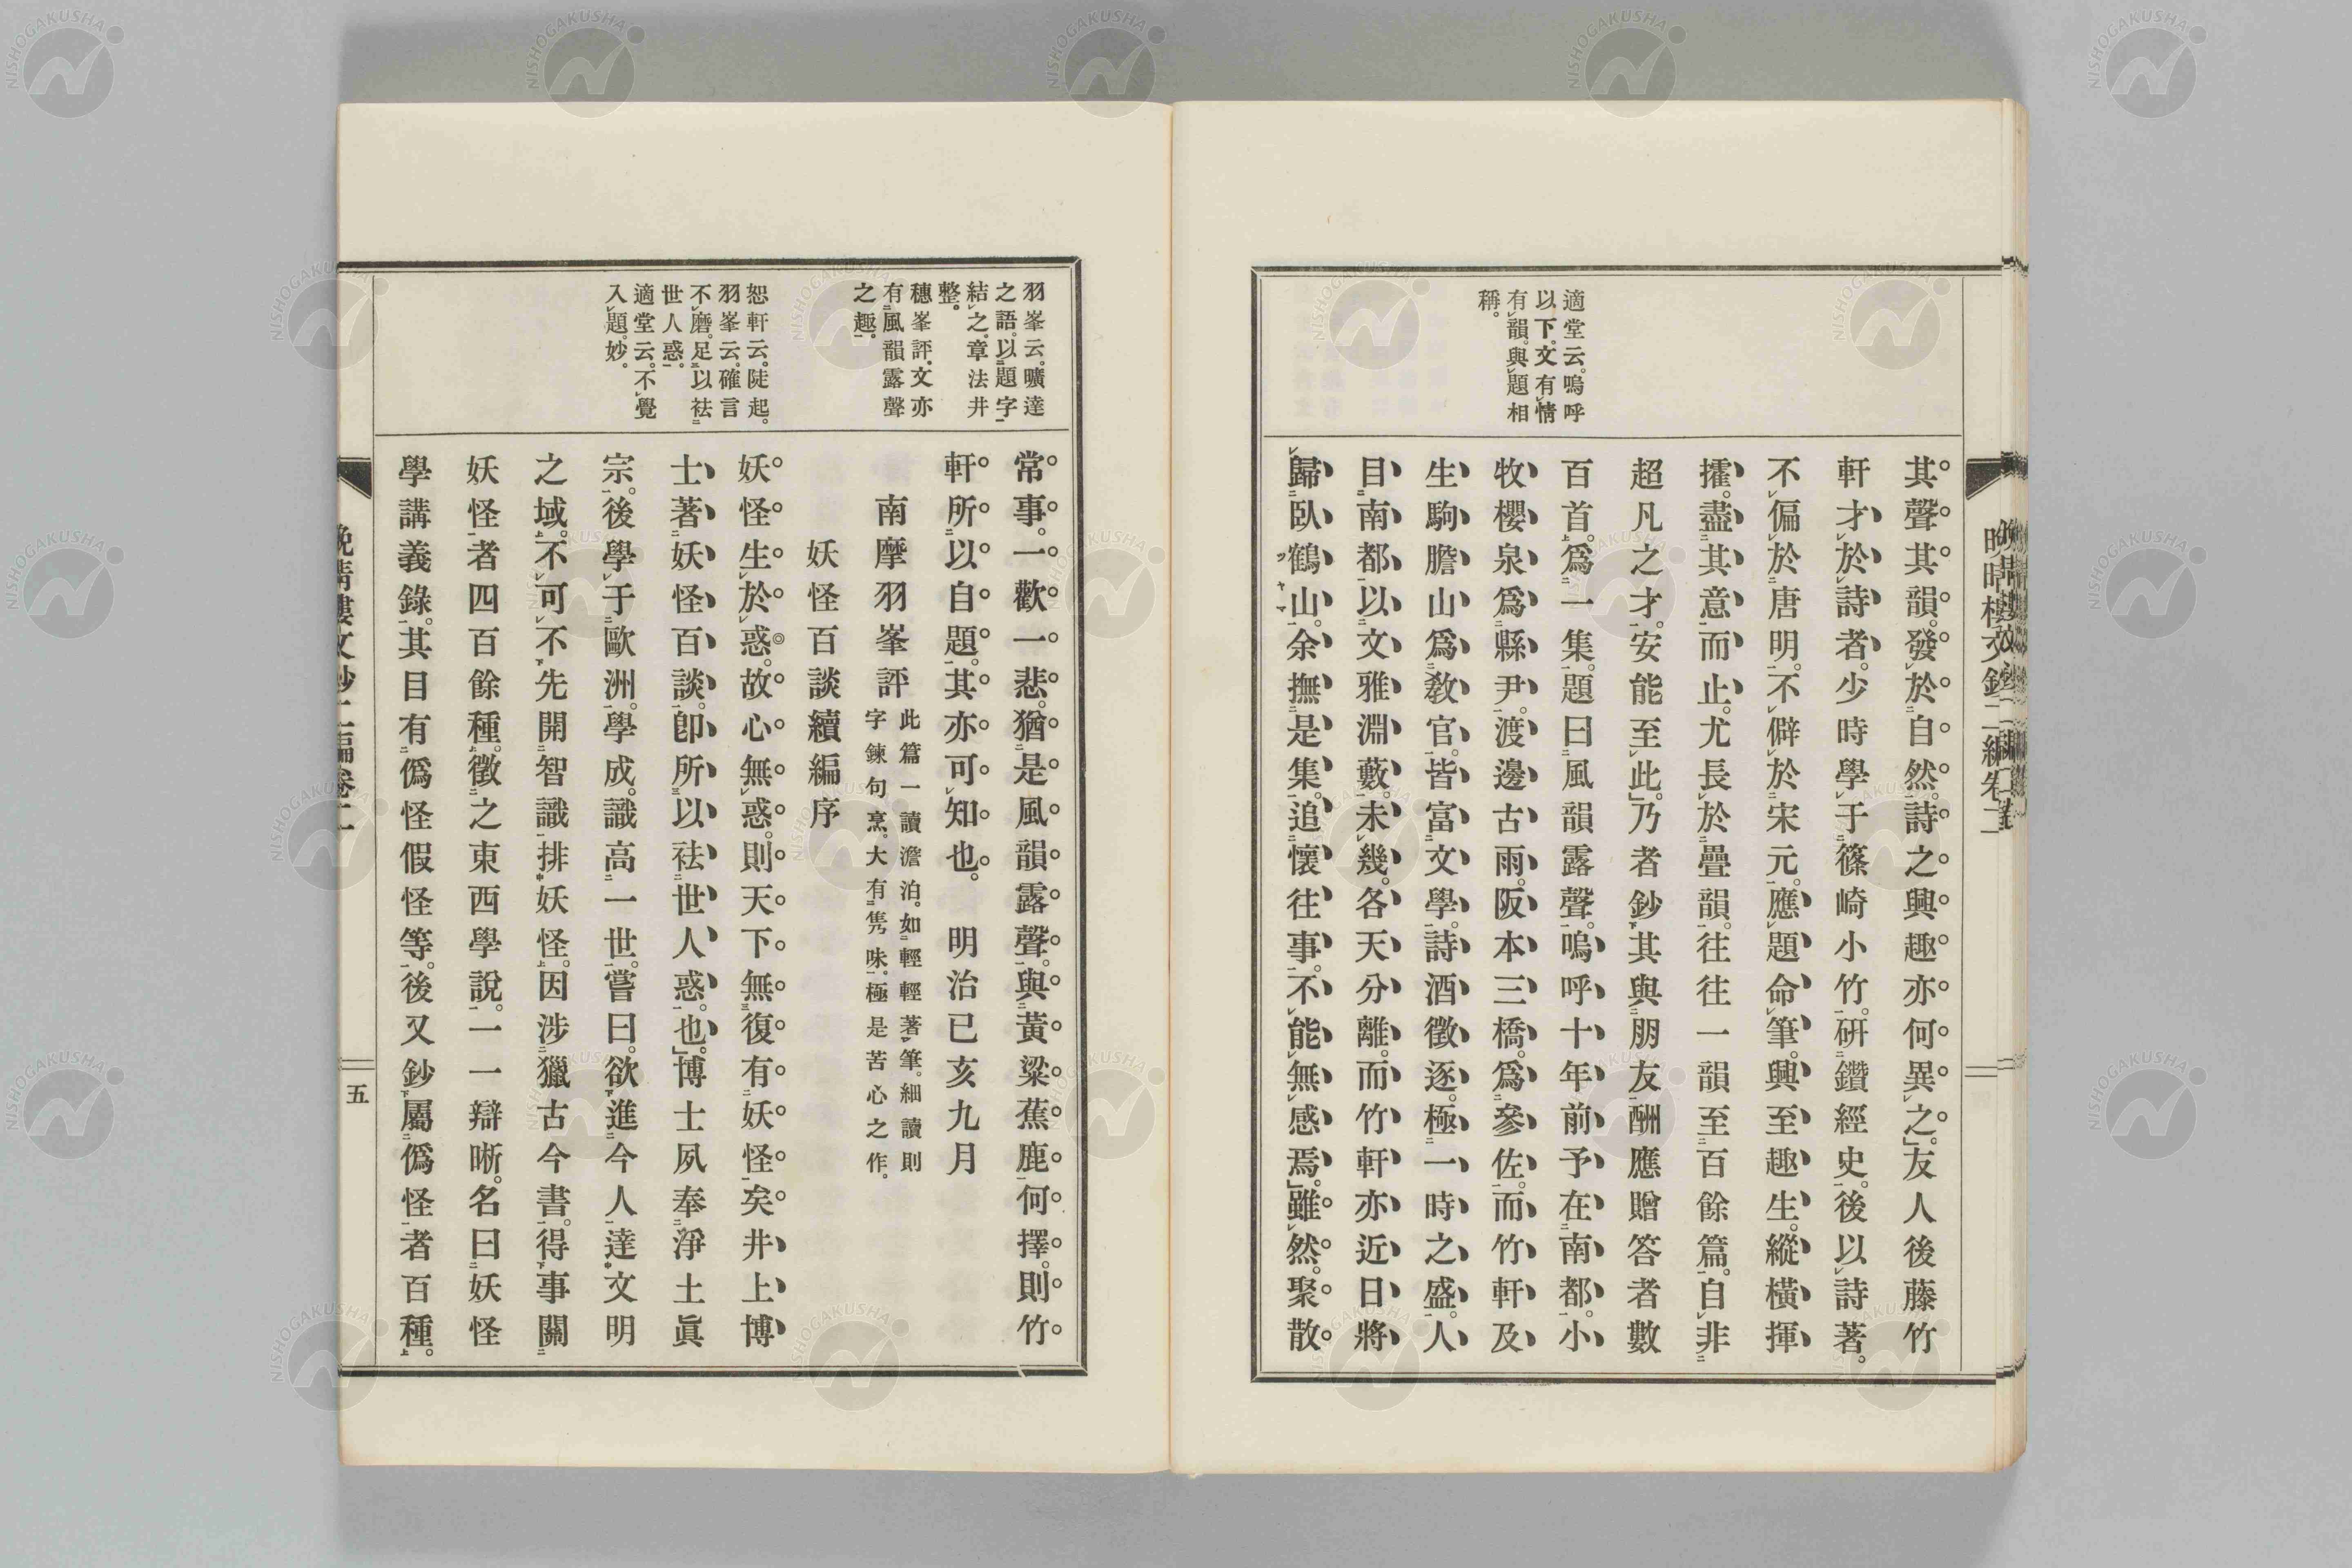 適堂云。嗚呼
以下。文有情
有韻。與題相
稱。
其聲其韻。發於自然。詩之興趣亦何異之。」友人後藤竹
軒才於詩者。少時學于篠崎小竹。研鑽經史。後以詩著。
不偏於唐明。不僻於宋元。應題命筆。興至趣生。縱橫揮
攉。盡其意而止。尤長於疊韻。往往一韻至百餘篇。自非
超凡之才。安能至此。」乃者鈔其與朋友酬應贈答者數
百首。爲一集。題曰風韻露聲。嗚呼十年前予在南都。小
牧櫻泉爲縣尹。渡邊古雨。阪本三橋。爲參佐。而竹軒及
生駒膽山爲敎官。皆富文學。詩酒徵逐。極一時之盛。人
目南都以文雅淵藪。未幾。各天分離。而竹軒亦近日將
歸臥鶴山。余撫是集。追懷往事。不能無感焉。」雖然。聚散
羽峯云。曠達
之語。以題字
結之。章法井
整。
穗峯評。文亦
有風韻露聲
之趣。
恕軒云。陡起。
羽峯云。確言
不磨。足以袪
世人惑。
適堂云。不覺
入題。妙。
常事。一歡一悲。猶是風韻露聲。與黃粱蕉鹿何擇。則竹
軒所以自題。其亦可知也。 明治已亥九月
南摩羽峯評 此篇一讀澹泊。如輕輕著筆。細讀則
字鍊句烹。大有雋味。極是苦心之作。
妖怪百談續編序
妖怪生於惑。故心無惑。則天下無復有妖怪矣井上博
士著妖怪百談。卽所以袪世人惑也。」博士夙奉淨土眞
宗。後學于歐洲。學成。識高一世。嘗曰。欲進今人達文明
之域。不可不先開智識排妖怪。因涉獵古今書。得事關
妖怪者四百餘種。徵之東西學說。一一辯晰。名曰妖怪
學講義錄。其目有僞怪假怪等。後又鈔屬僞怪者百種。
五